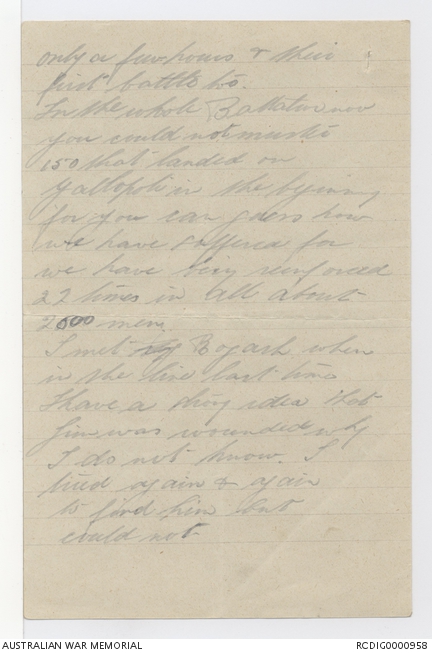 only a few hours & their
first battle too.
In the whole Battalion now
you could not muster
150 that landed on
Gallopoli in the beginning
for you can guess how
we have suffered for
we have being reinforced
22 times in all about
2500 men.
I met Bogash when
in the line last time
I have a thing idea that
Jim was wounded why
I do not know. I
tried again & again
to find him but
could not
AUSTRALIAN WAR MEMORIAL
RCDIG0000958